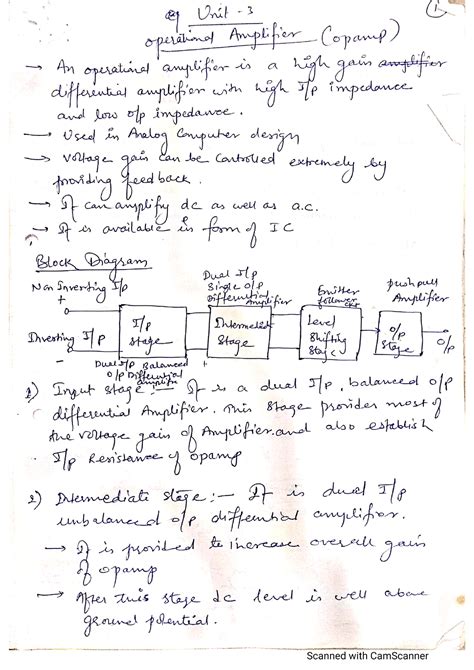 Unit - 3
1
Operational Amplifier (opamp)
→ An operational amplifier is a high gain amplifier
differential amplifier with high I/p impedance
and low o/p impedance.
→ Used in Analog Computer design
→ voltage gain can be controlled extremely by
providing feedback.
→ It can amplify dc as well as a.c.
→ It is available in form of IC
Block Diagram
Non Inverting I/p
+
Inverting I/p
-
I/p
stage
Dual I/p Balanced
o/p Differential
Amplifier
Dual I/p
Single o/p
Differential Amplifier
Intermediate
Stage
+
Emitter
follower
ckt
Level
Shifting
Stage
push pull
Amplifier
o/p
Stage
o/p
1) Input stage :- It is a dual I/p, balanced o/p
differential Amplifier. This stage provides most of
the voltage gain of Amplifier and also establish
I/p Resistance of opamp
2) Intermediate stage :- It is dual I/p
unbalanced o/p differential amplifier.
→ It is provided to increase overall gain
of opamp
→ After this stage dc level is well above
ground potential.
Scanned with CamScanner